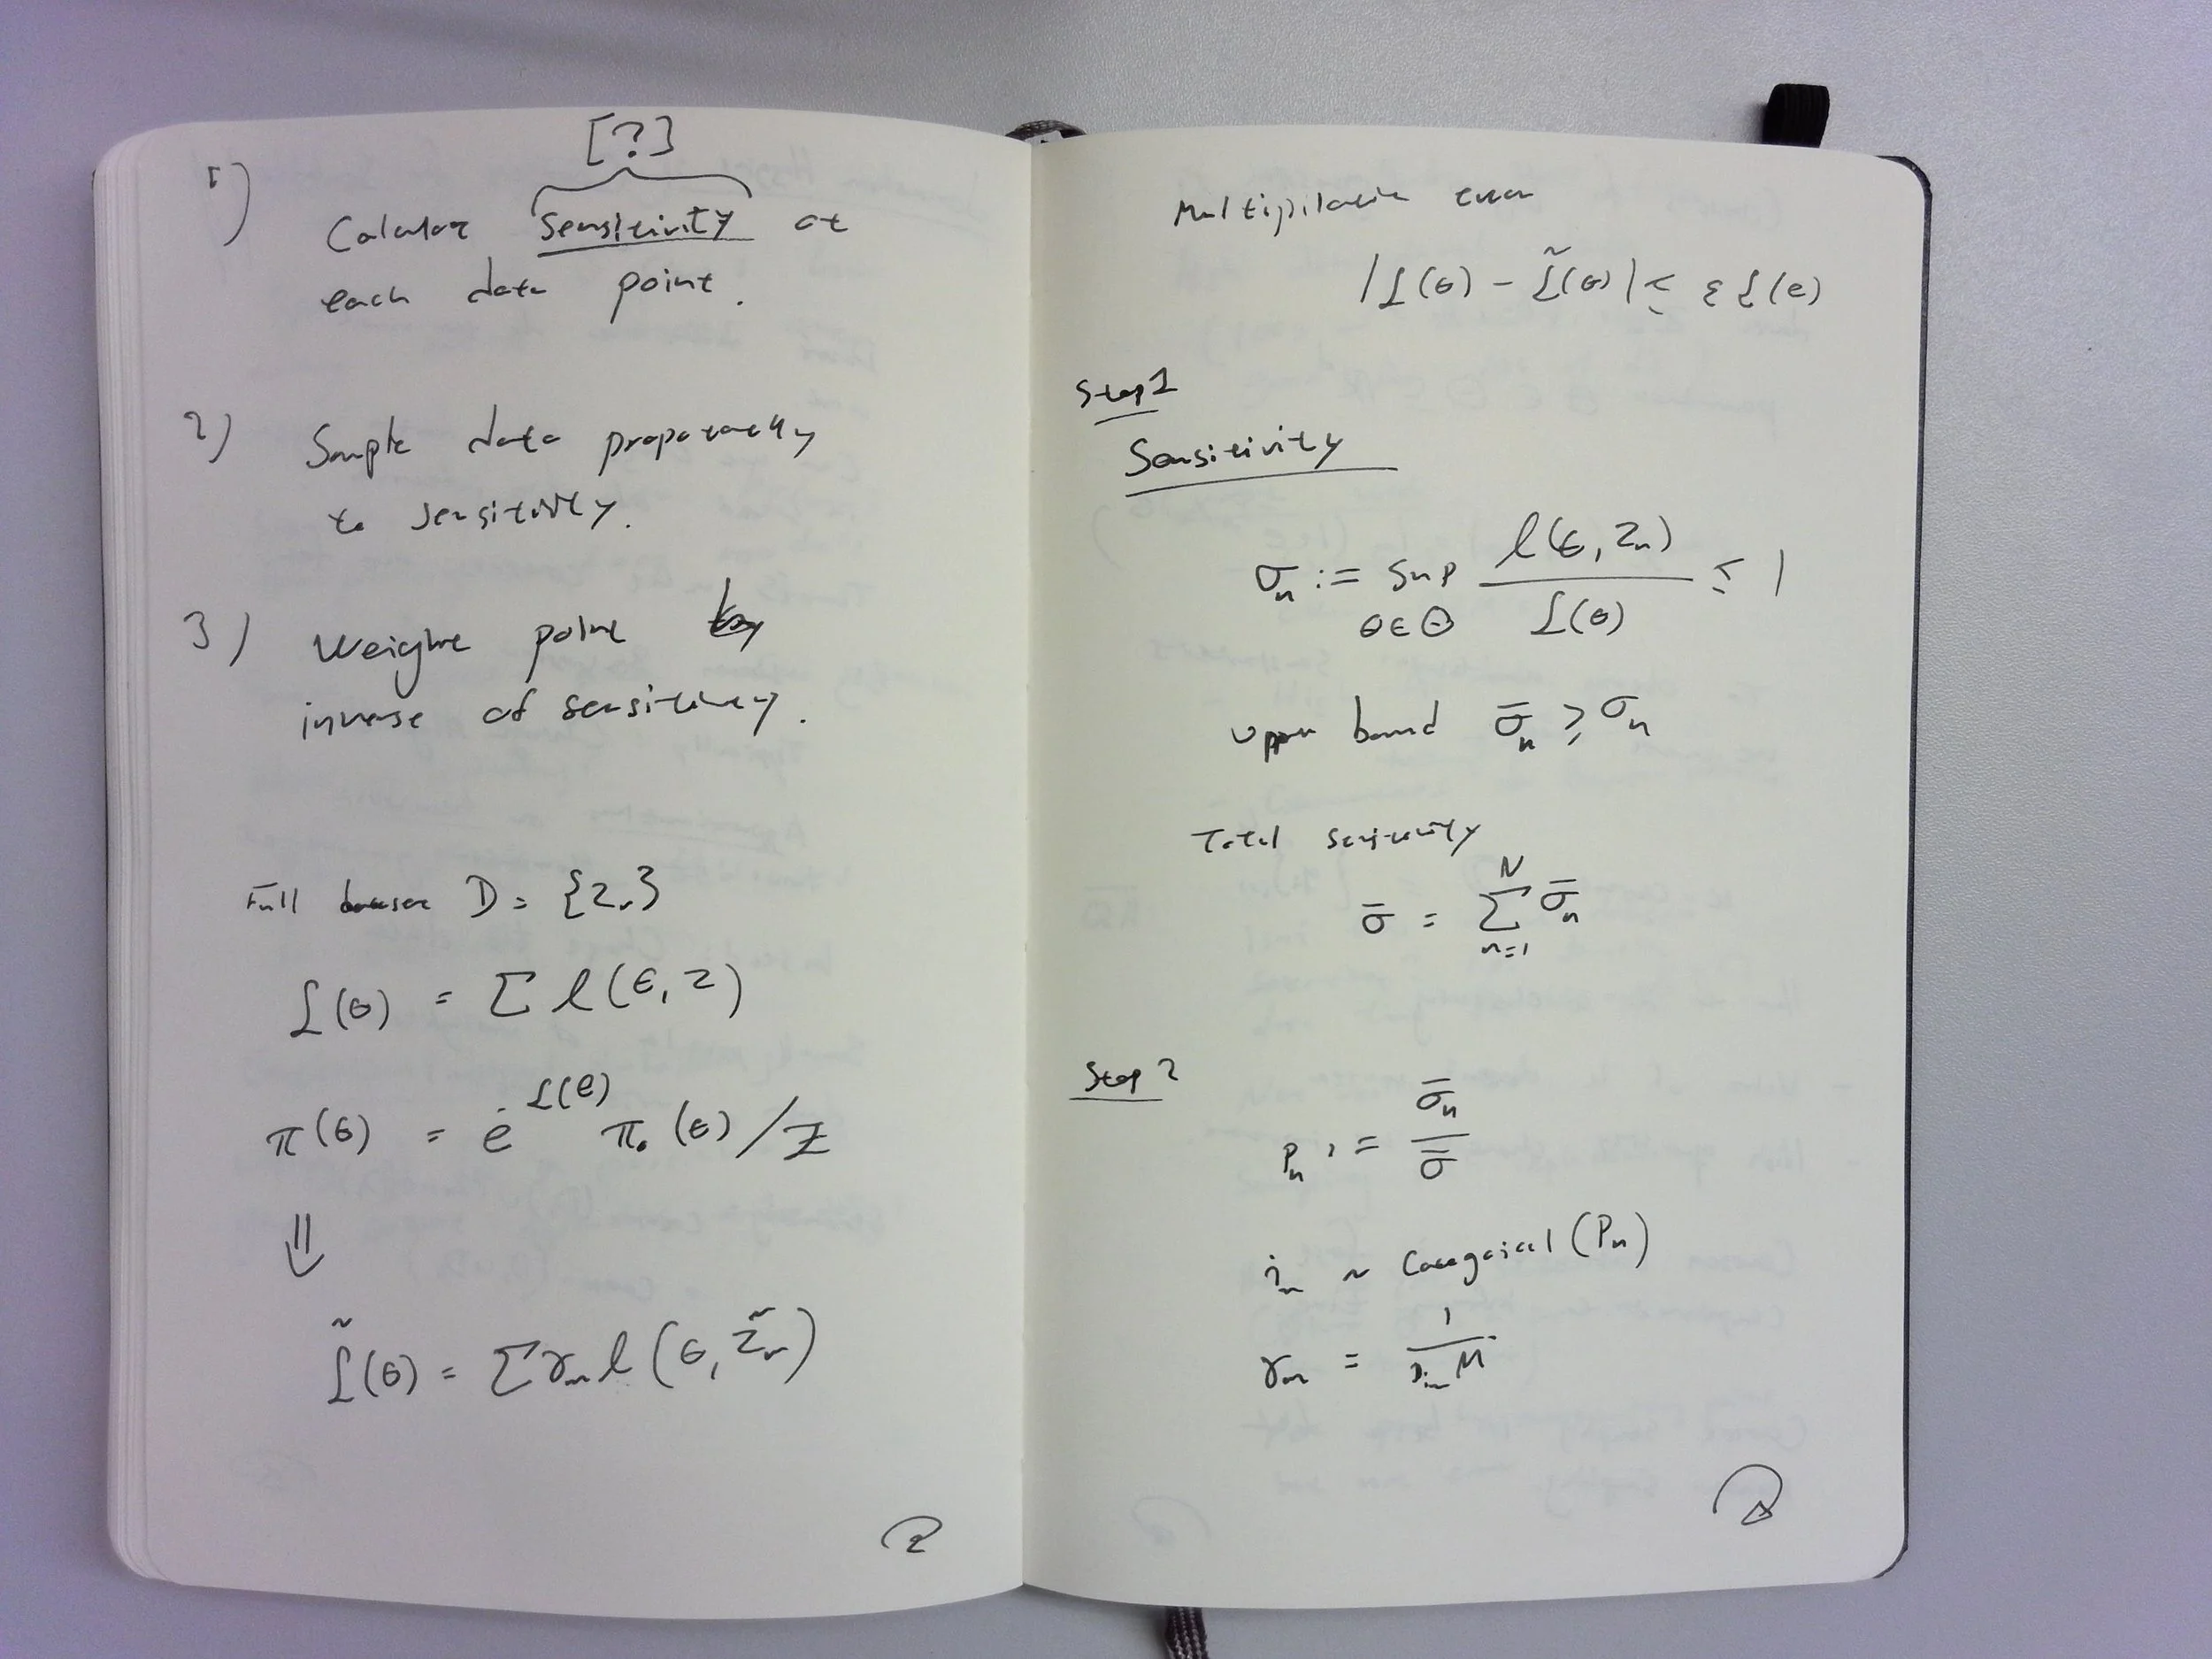 [?]
1) Calculate Sensitivity at
each data point.
2) Sample data proportionally
to sensitivity.
3) Weight point by
inverse of sensitivity.
Full dataset D = {z_n}
L(θ) = Σ l(θ, z)
π(θ) = e^L(θ) π_0(θ)/Z
⇓
L̃(θ) = Σ γ_m l(θ, z̃_m)
2
Multiplicative error
|L(θ) - L̃(θ)| ≤ ε L(θ)
Step 1
Sensitivity
σ_n := sup_{θ∈Θ} l(θ, z_n) / L(θ) ≤ 1
upper bound σ̄_n ≥ σ_n
Total sensitivity
σ̄ = Σ_{n=1}^N σ̄_n
Step 2
p_n := σ̄_n / σ̄
i_m ~ Categorical (p_n)
γ_m = 1 / p_{i_m} M